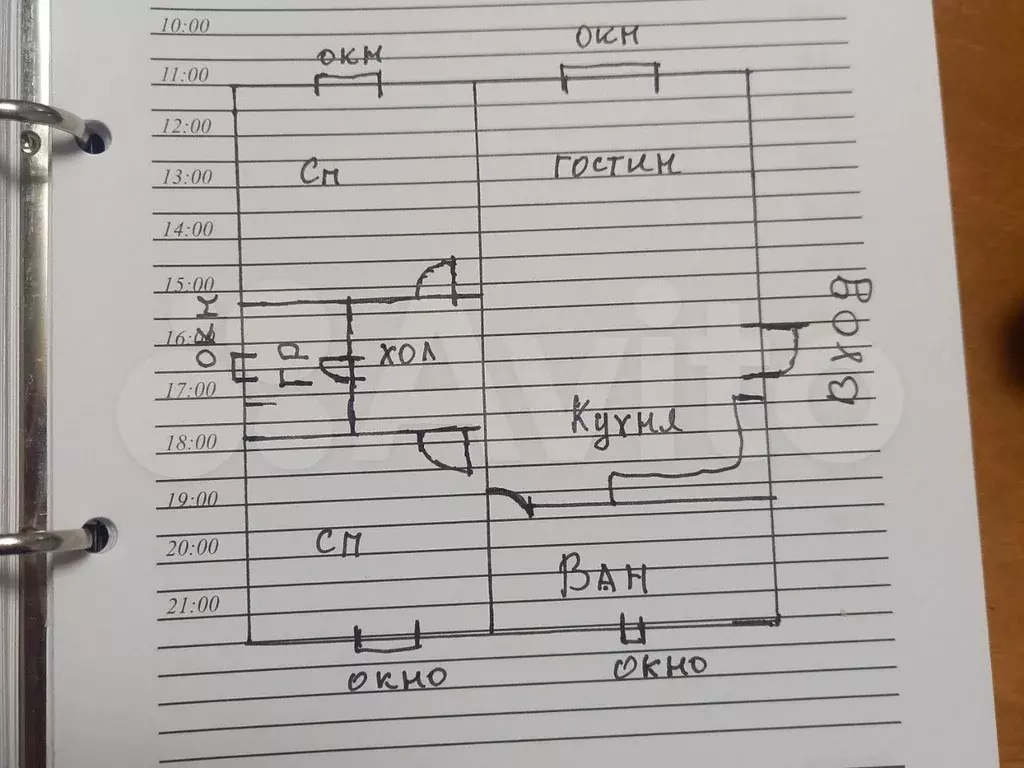 10:00
ОКН
ОКН
11:00
12:00
Сп
ГОСТИН
13:00
14:00
15:00
16:00
ВХОВ
ГР
ХОЛ
17:00
Кухня
18:00
19:00
20:00
СП
ВАН
21:00
ОКНО
ОКНО
Avito